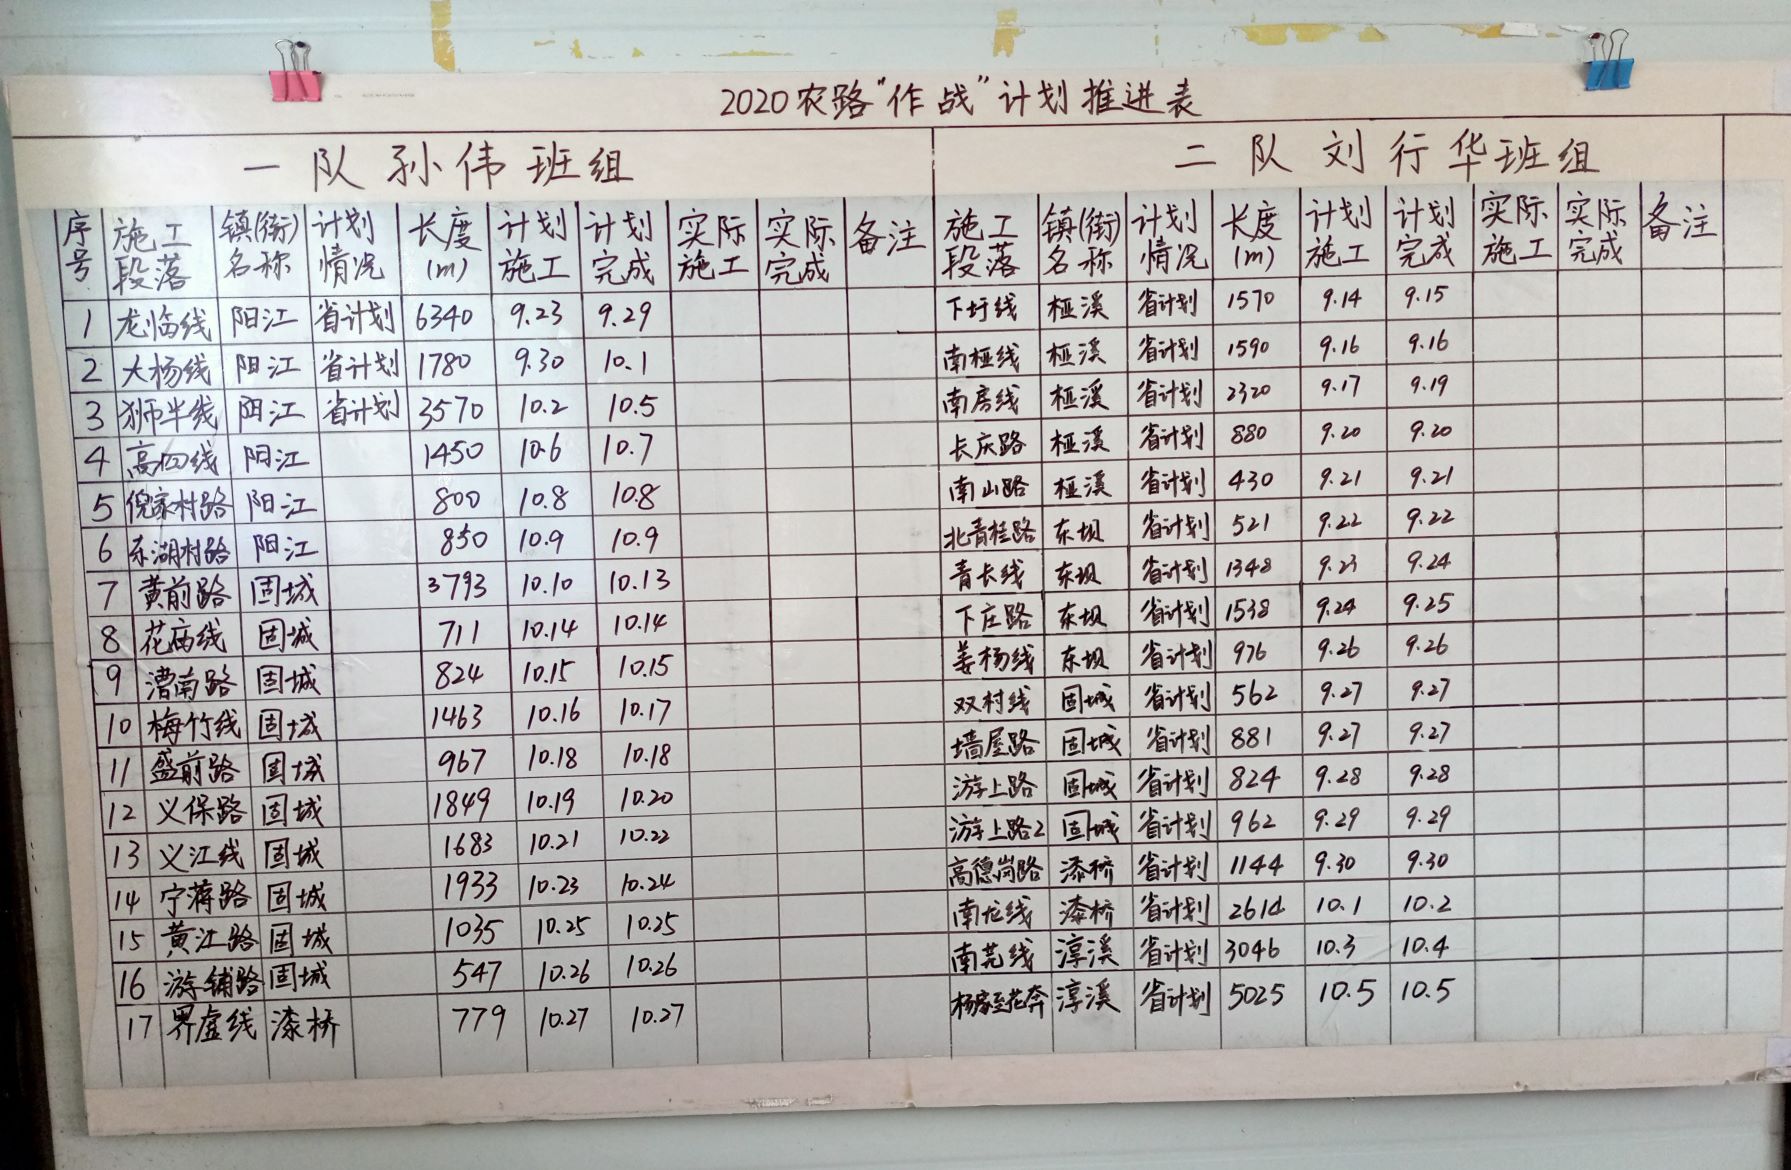 2020农路“作战”计划推进表
一队孙伟班组 二队刘行华班组
序号 施工段落 镇(街)名称 计划情况 长度(m) 计划施工 计划完成 实际施工 实际完成 备注 施工段落 镇(街)名称 计划情况 长度(m) 计划施工 计划完成 实际施工 实际完成 备注
1 龙临线 阳江 省计划 6340 9.23 9.29 下圩线 桠溪 省计划 1570 9.14 9.15
2 大杨线 阳江 省计划 1780 9.30 10.1 南桠线 桠溪 省计划 1590 9.16 9.16
3 狮半线 阳江 省计划 3570 10.2 10.5 南房线 桠溪 省计划 2320 9.17 9.19
4 高四线 阳江 1450 10.6 10.7 长庆路 桠溪 省计划 880 9.20 9.20
5 倪家村路 阳江 800 10.8 10.8 南山路 桠溪 省计划 430 9.21 9.21
6 东湖村路 阳江 850 10.9 10.9 北青桂路 东坝 省计划 521 9.22 9.22
7 黄前路 固城 3793 10.10 10.13 青长线 东坝 省计划 1348 9.23 9.24
8 花庙线 固城 711 10.14 10.14 下庄路 东坝 省计划 1538 9.24 9.25
9 漕南路 固城 824 10.15 10.15 姜杨线 东坝 省计划 976 9.26 9.26
10 梅竹线 固城 1463 10.16 10.17 双村线 固城 省计划 562 9.27 9.27
11 盛前路 固城 967 10.18 10.18 墙屋路 固城 省计划 881 9.27 9.27
12 义保路 固城 1849 10.19 10.20 游上路 固城 省计划 824 9.28 9.28
13 义江线 固城 1683 10.21 10.22 游上路2 固城 省计划 962 9.29 9.29
14 宁蒋路 固城 1933 10.23 10.24 高德岗路 漆桥 省计划 1144 9.30 9.30
15 黄江路 固城 1035 10.25 10.25 南龙线 漆桥 省计划 2614 10.1 10.2
16 游铺路 固城 547 10.26 10.26 南芜线 淳溪 省计划 3046 10.3 10.4
17 界虚线 漆桥 779 10.27 10.27 杨家至花奔 淳溪 省计划 5025 10.5 10.5